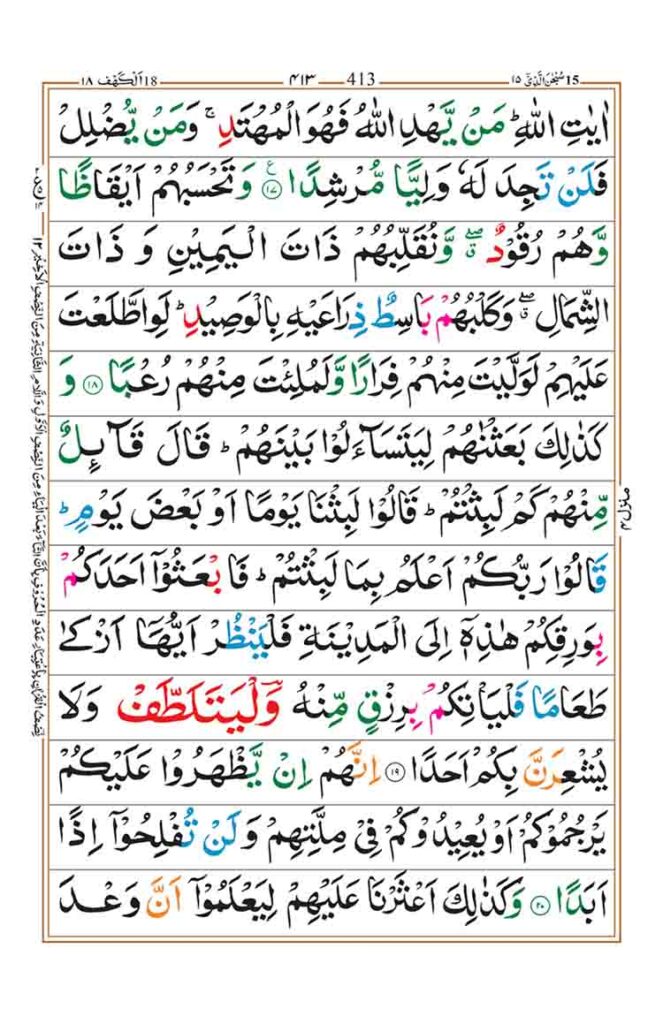 15 سُبْحٰنَ الَّذِیْ ۱۵ 413 ۴۱۳ 18 اَلْكَهْف ۱۸
اٰیٰتِ اللّٰهِ ؕ مَنْ یَّهْدِ اللّٰهُ فَهُوَ الْمُهْتَدِ ۚ وَمَنْ یُّضْلِلْ
فَلَنْ تَجِدَ لَهٗ وَلِیًّا مُّرْشِدًا ۠ ﴿۱۷﴾ وَتَحْسَبُهُمْ اَیْقَاظًا
وَّهُمْ رُقُوْدٌ ۖۗ وَّنُقَلِّبُهُمْ ذَاتَ الْیَمِیْنِ وَ ذَاتَ
الشِّمَالِ ۖۗ وَكَلْبُهُمْ بَاسِطٌ ذِرَاعَیْهِ بِالْوَصِیْدِ ؕ لَوِاطَّلَعْتَ
عَلَیْهِمْ لَوَلَّیْتَ مِنْهُمْ فِرَارًا وَّلَمُلِئْتَ مِنْهُمْ رُعْبًا ﴿۱۸﴾ وَ
كَذٰلِكَ بَعَثْنٰهُمْ لِیَتَسَآءَلُوْا بَیْنَهُمْ ؕ قَالَ قَآىِٕلٌ
مِّنْهُمْ كَمْ لَبِثْتُمْ ؕ قَالُوْا لَبِثْنَا یَوْمًا اَوْ بَعْضَ یَوْمٍ ؕ
قَالُوْا رَبُّكُمْ اَعْلَمُ بِمَا لَبِثْتُمْ ؕ فَابْعَثُوْۤا اَحَدَكُمْ
بِوَرِقِكُمْ هٰذِهٖۤ اِلَی الْمَدِیْنَةِ فَلْیَنْظُرْ اَیُّهَاۤ اَزْكٰی
طَعَامًا فَلْیَاْتِكُمْ بِرِزْقٍ مِّنْهُ وَلْیَتَلَطَّفْ وَلَا
یُشْعِرَنَّ بِكُمْ اَحَدًا ﴿۱۹﴾ اِنَّهُمْ اِنْ یَّظْهَرُوْا عَلَیْكُمْ
یَرْجُمُوْكُمْ اَوْ یُعِیْدُوْكُمْ فِیْ مِلَّتِهِمْ وَلَنْ تُفْلِحُوْۤا اِذًا
اَبَدًا ﴿۲۰﴾ وَكَذٰلِكَ اَعْثَرْنَا عَلَیْهِمْ لِیَعْلَمُوْۤا اَنَّ وَعْدَ
منزل ۴